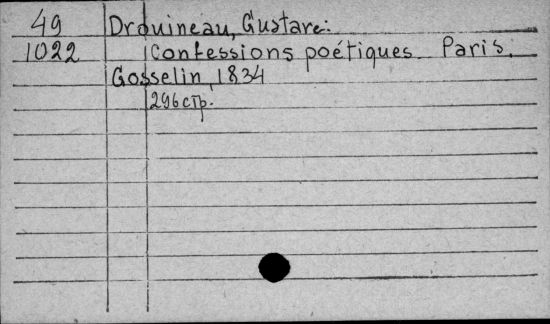 49 Drouineau, Gustave:
1022 Confessions poétiques. Paris,
Gosselin, 1834
296 стр.